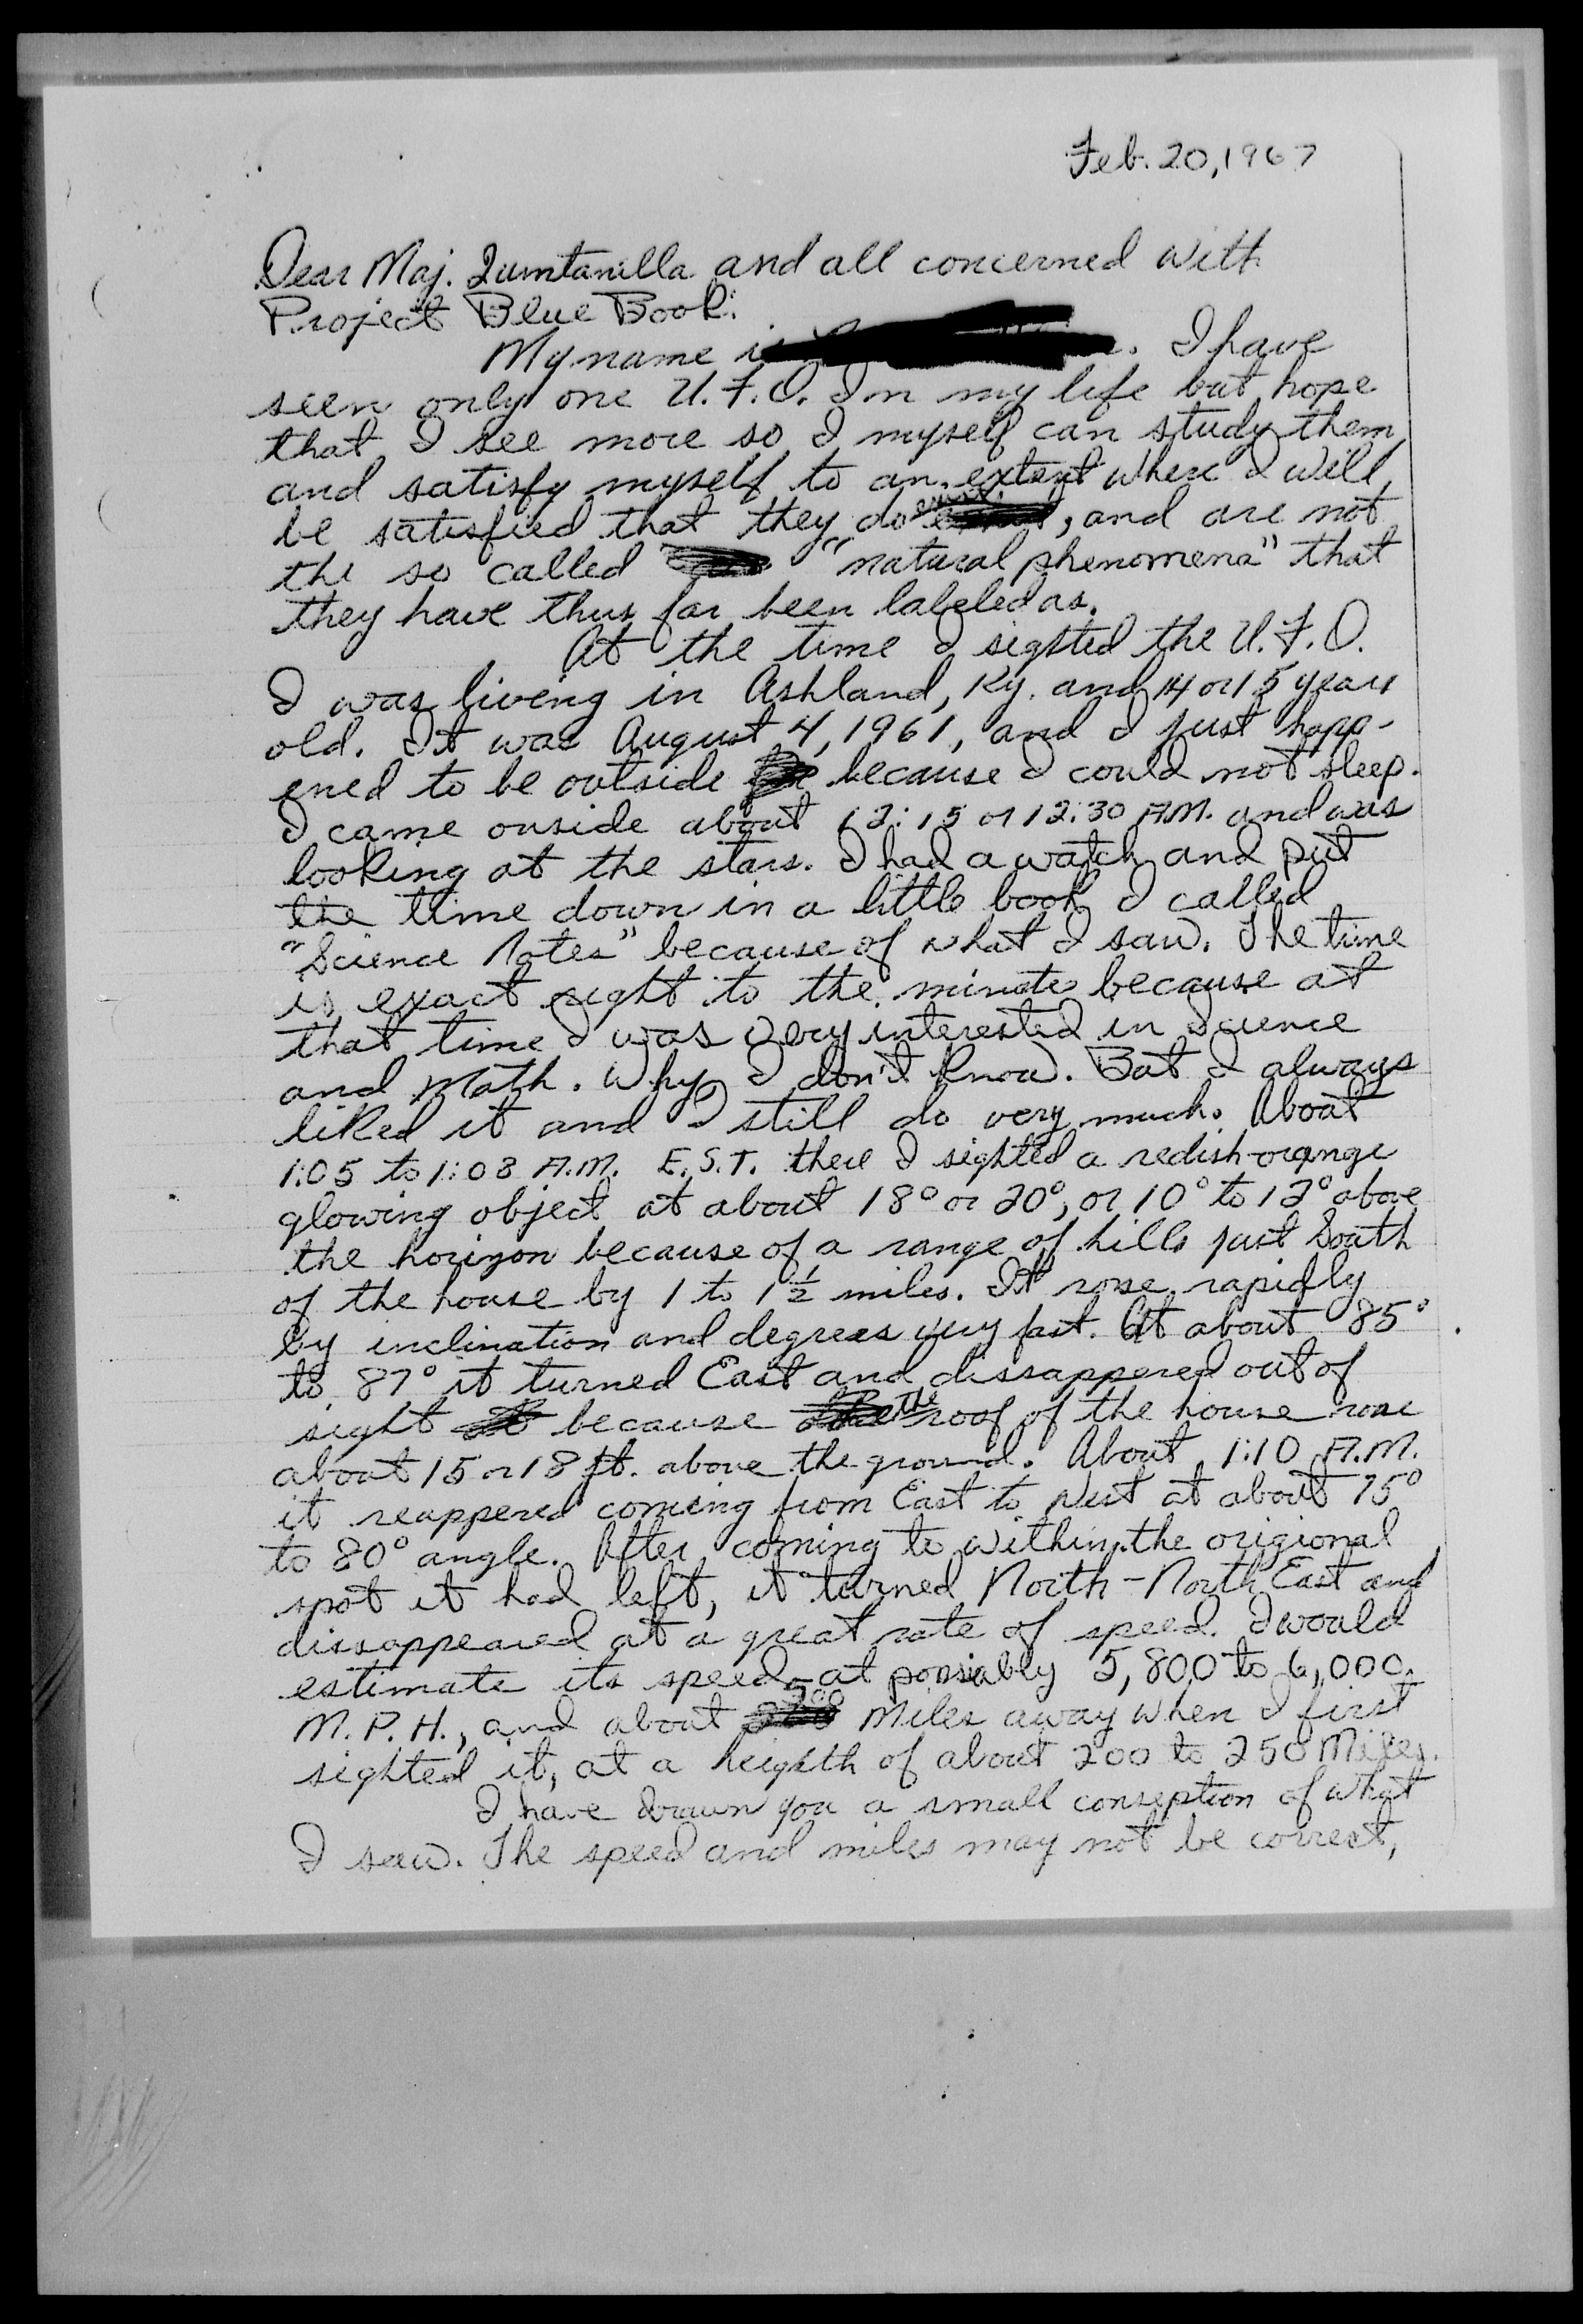 Feb. 20, 1967
Dear Maj. Quintanilla and all concerned with
Project Blue Book:
My name is . I have
seen only one U.F.O. In my life but hope
that I see more so I myself can study them
and satisfy myself to an extent where I will
be satisfied that they do exist, and are not
the so called "natural phenomena" that
they have thus far been labeled as.
At the time I sighted the U.F.O.
I was living in Ashland, Ky. and 14 or 15 years
old. It was August 4, 1961, and I just happ-
ened to be outside because I could not sleep.
I came ouside about 12:15 or 12:30 A.M. and was
looking at the stars. I had a watch and put
the time down in a little book I called
"Science Notes" because of what I saw. The time
is exact right to the minute because at
that time I was very interested in science
and Math. Why I don't know. But I always
liked it and I still do very much. About
1:05 to 1:08 A.M. E.S.T. there I sighted a redish-orange
glowing object at about 18° or 20°, or 10° to 12° above
the horizon because of a range of hills just South
of the house by 1 to 1 1/2 miles. It rose rapidly
by inclination and degrees very fast. At about 85°
to 87° it turned East and dissappered out of
sight because the roof of the house rose
about 15 or 18 ft. above the ground. About 1:10 A.M.
it reappered coming from East to West at about 75°
to 80° angle. After coming to within the origional
spot it had left, it turned North-North East and
dissappeared at a great rate of speed. I would
estimate its speed at possiably 5,800 to 6,000
M.P.H., and about 500 Miles away when I first
sighted it, at a heighth of about 200 to 250 Miles.
I have drawn you a small conseption of what
I saw. The speed and miles may not be correct,